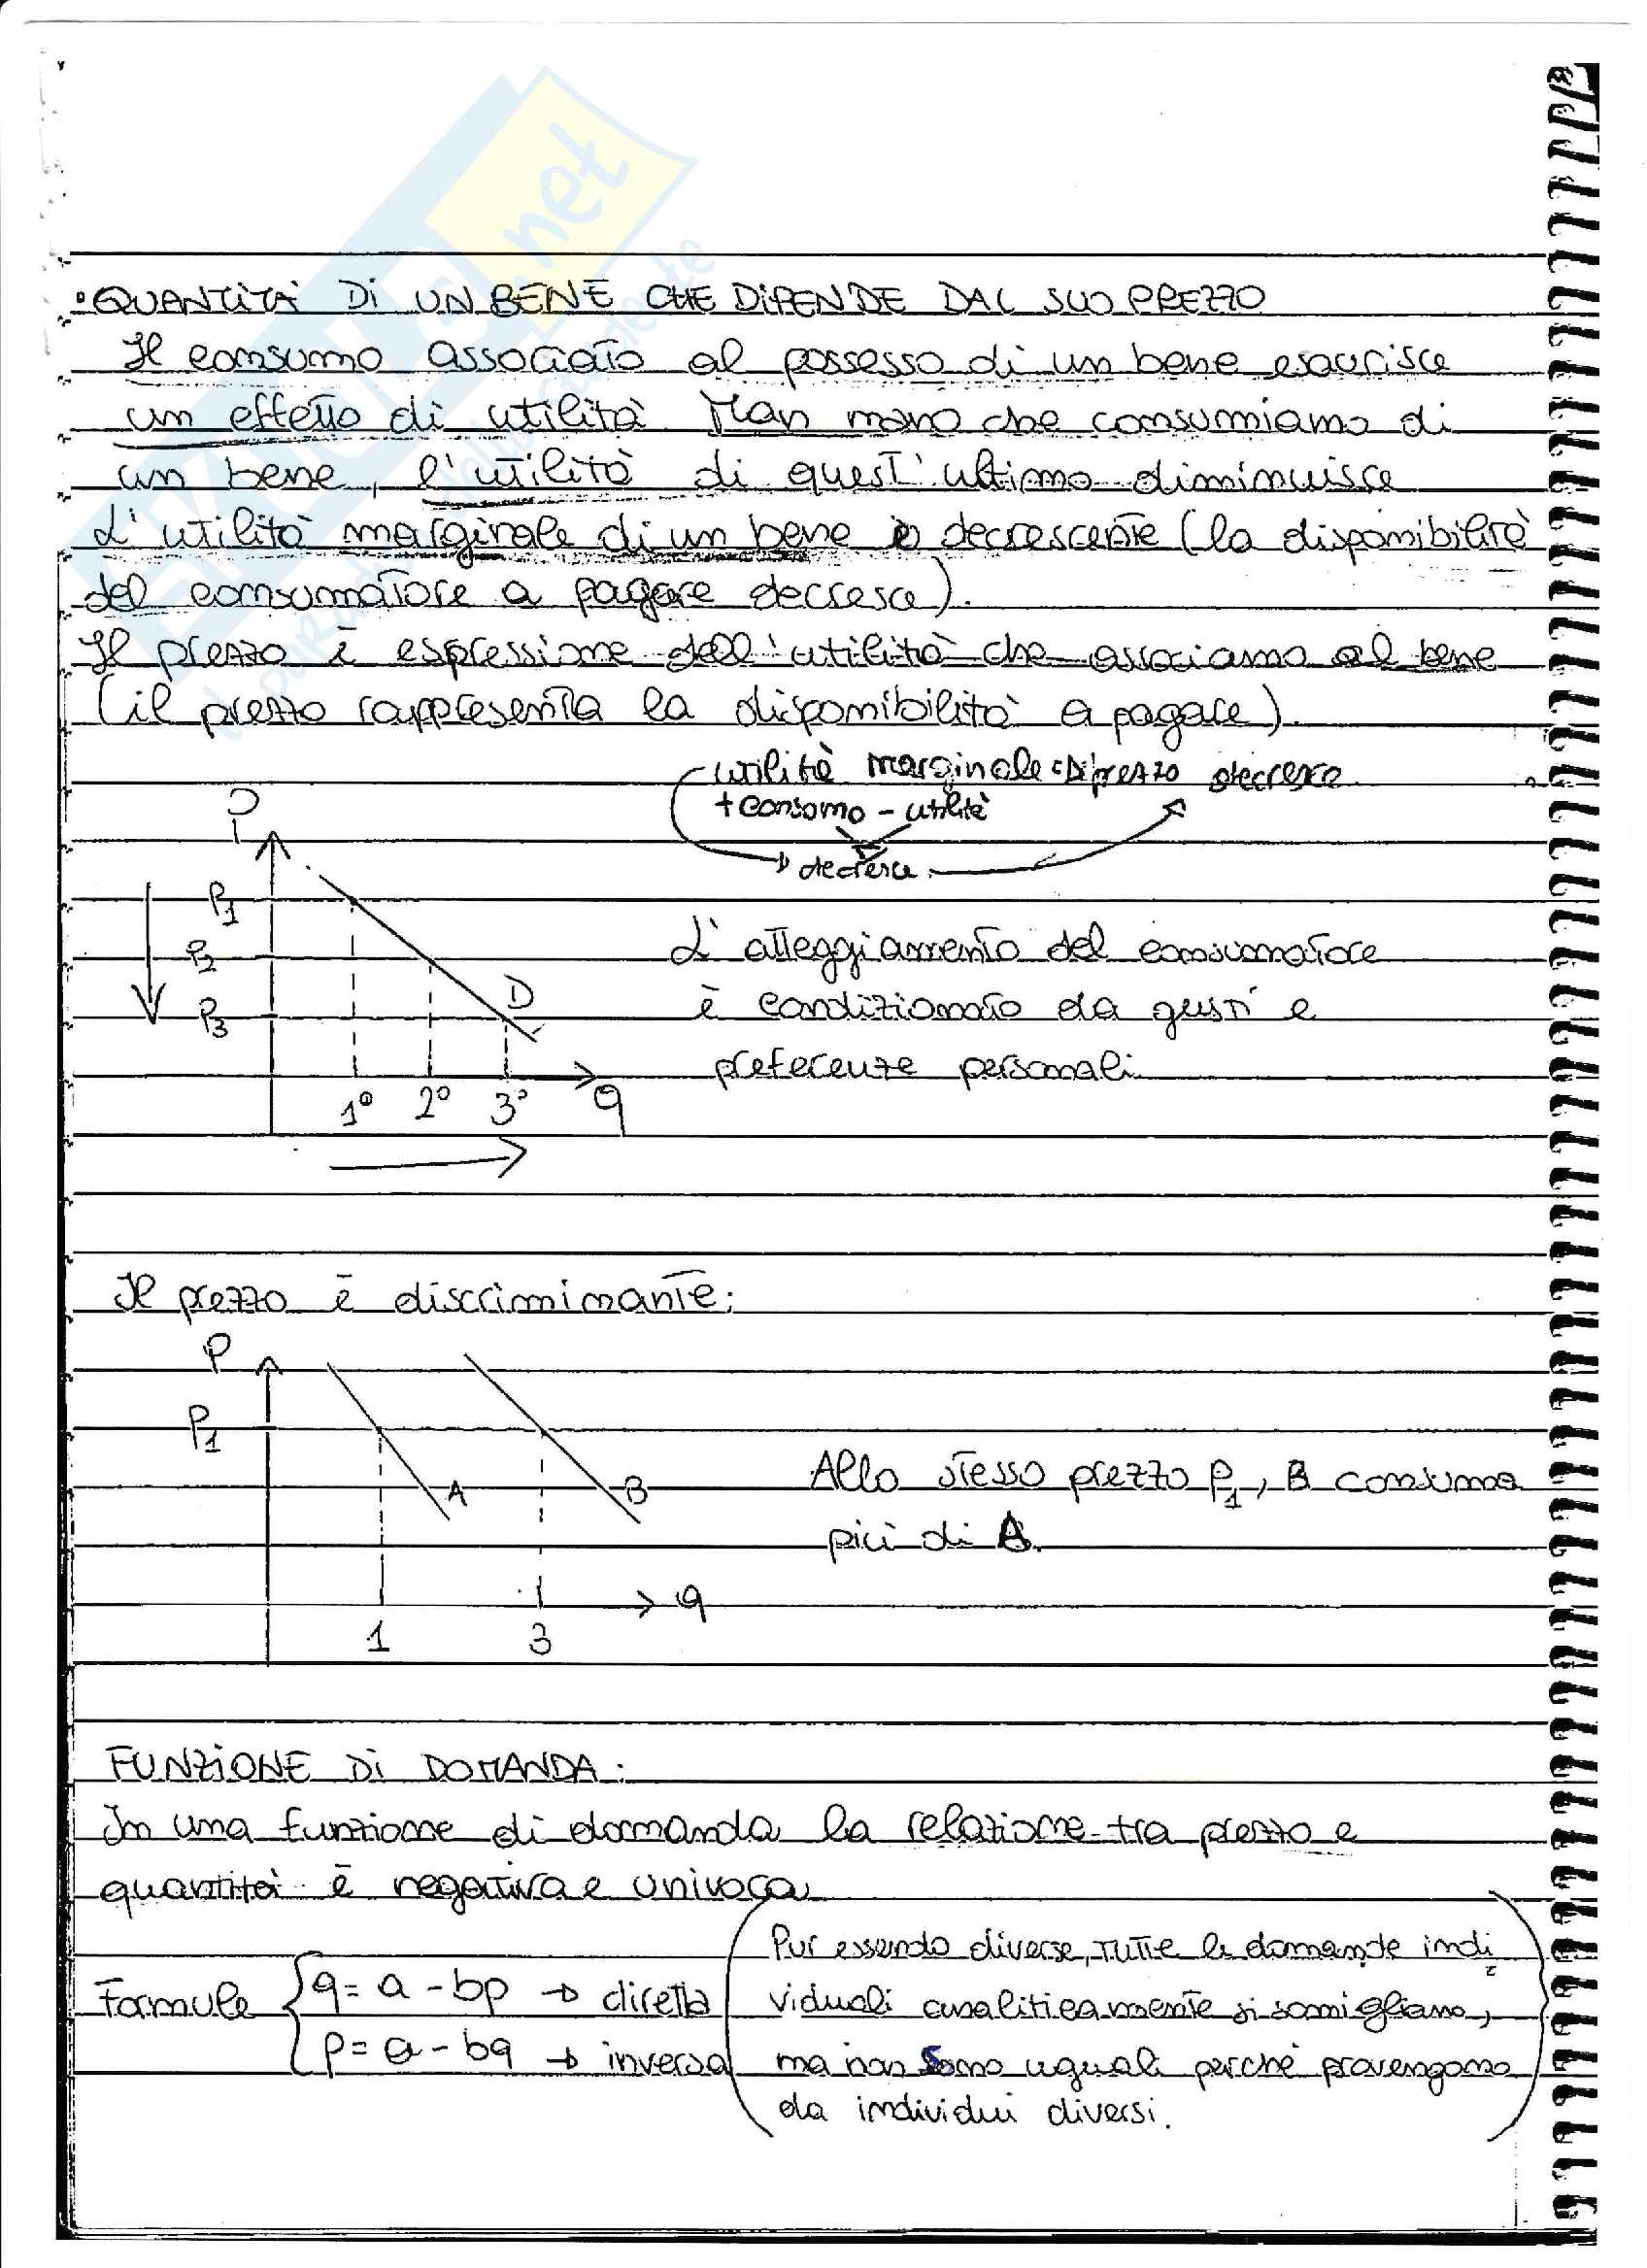 • QUANTITÀ DI UN BENE CHE DIPENDE DAL SUO PREZZO
Il consumo associato al possesso di un bene esaurisce
un effetto di utilità. Man mano che consumiamo di
un bene, l'utilità di quest'ultimo diminuisce
L'utilità marginale di un bene è decrescente (la disponibilità
del consumatore a pagare decresce).
Il prezzo è espressione dell'utilità che associamo al bene
(il prezzo rappresenta la disponibilità a pagare).
utilità marginale prezzo decresce
+ consumo - utilità
decresce
P
P1
P2
P3
D
1° 2° 3° q
L'atteggiamento del consumatore
è condizionato da gusti e
preferenze personali.
Il prezzo è discriminante:
P
P1
A B
1 3 q
Allo stesso prezzo P1, B consuma
più di A.
FUNZIONE DI DOMANDA:
In una funzione di domanda la relazione tra prezzo e
quantità è negativa e univoca
Formule { q = a - bp → diretta
p = a - bq → inversa
(Pur essendo diverse, tutte le domande indi
viduali analiticamente si somigliano,
ma non sono uguali perché provengono
da individui diversi.)
.net